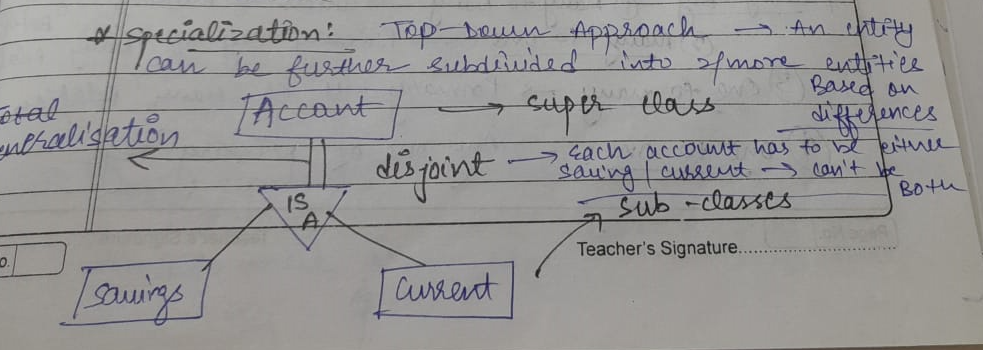 * Specialization: Top-Down Approach → An entity
can be further subdivided into 2/more entities
Based on
differences
Total
Generalisation
Account → super class
disjoint → Each account has to be either
saving / current → can't be
Both
IS
A
Sub-classes
Teacher's Signature
Savings
Current